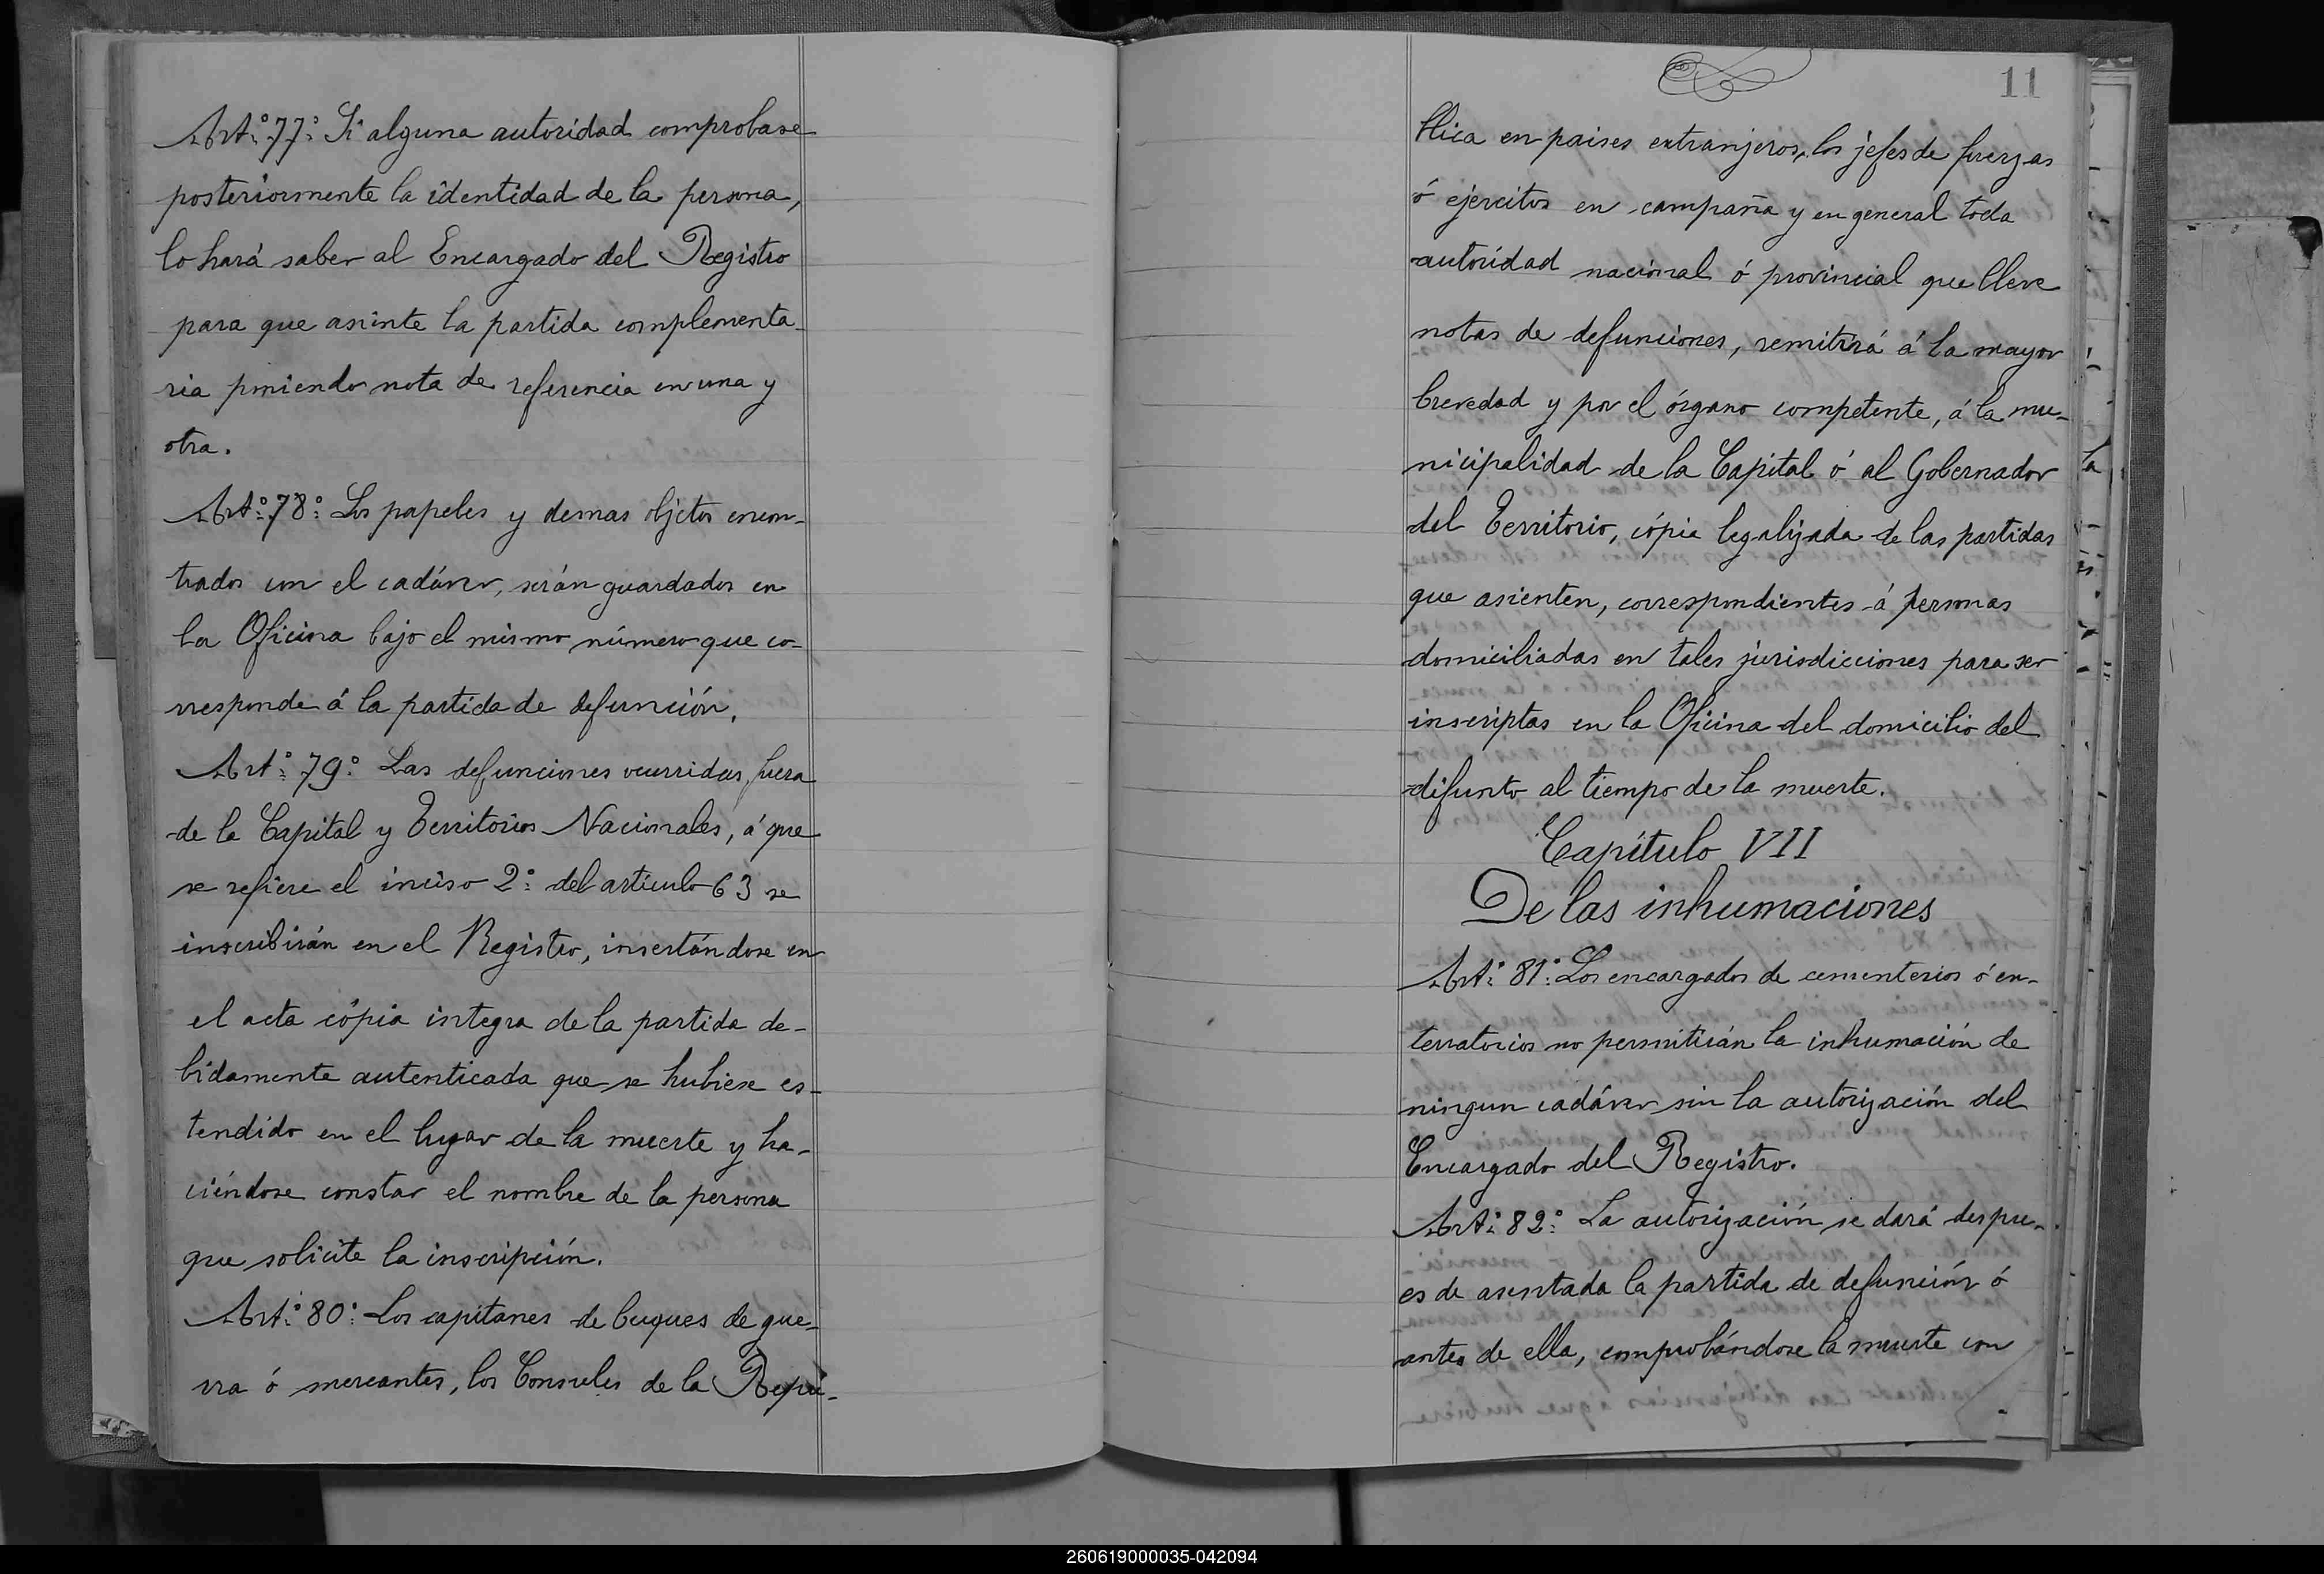 Art.º 77º: Si alguna autoridad comprobase
posteriormente la identidad de la persona,
lo hará saber al Encargado del Registro
para que asiente la partida complementa-
ria poniendo nota de referencia en una y
otra.
Art.º 78º: Los papeles y demas objetos encon-
trados con el cadáver, serán guardados en
la Oficina bajo el mismo número que co-
rresponde á la partida de defunción.
Art.º 79º: Las defunciones ocurridas fuera
de la Capital y Territorios Nacionales, á que
se refiere el inciso 2º: del artículo 63 se
inscribirán en el Registro, insertándose en
el acta cópia integra de la partida de-
bidamente autenticada que se hubiese es-
tendido en el lugar de la muerte y ha-
ciéndose constar el nombre de la persona
que solicite la inscripción.
Art.º 80º: Los capitanes de buques de gue-
rra ó mercantes, los Consules de la Repú-
11
blica en paises extranjeros, los jefes de fuerzas
ó ejercitos en campaña y en general toda
autoridad nacional ó provincial que lleve
notas de defunciones, remitirá á la mayor
brevedad y por el órgano competente, á la mu-
nicipalidad de la Capital ó al Gobernador
del Territorio, cópia legalizada de las partidas
que asienten, correspondientes á personas
domiciliadas en tales jurisdicciones para ser
inscriptas en la Oficina del domicilio del
difunto al tiempo de la muerte.
Capítulo VII
De las inhumaciones
Art.º 81º: Los encargados de cementerios ó en-
terratorios no permitirán la inhumación de
ningun cadáver sin la autorización del
Encargado del Registro.
Art.º 82º: La autorización se dará despu-
es de asentada la partida de defunción ó
antes de ella, comprobándose la muerte con
260619000035-042094